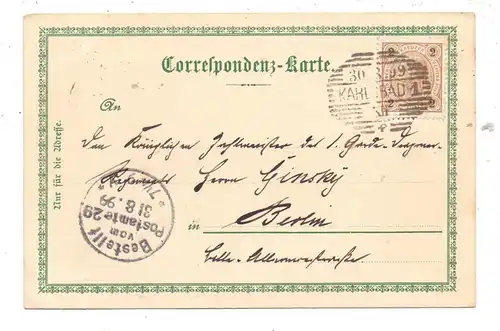 Correspondenz-Karte.
2 2
30 8 99
KARLSBAD 1
2 2
An
Den Königlichen Zahlmeister des 1. Garde-Dragoner-
Regiments Herrn Ginsky
in Berlin
Belle-Alliancestraße
Nur für die Adresse.
Bestellt
vom
Postamte 29
31 8. 99